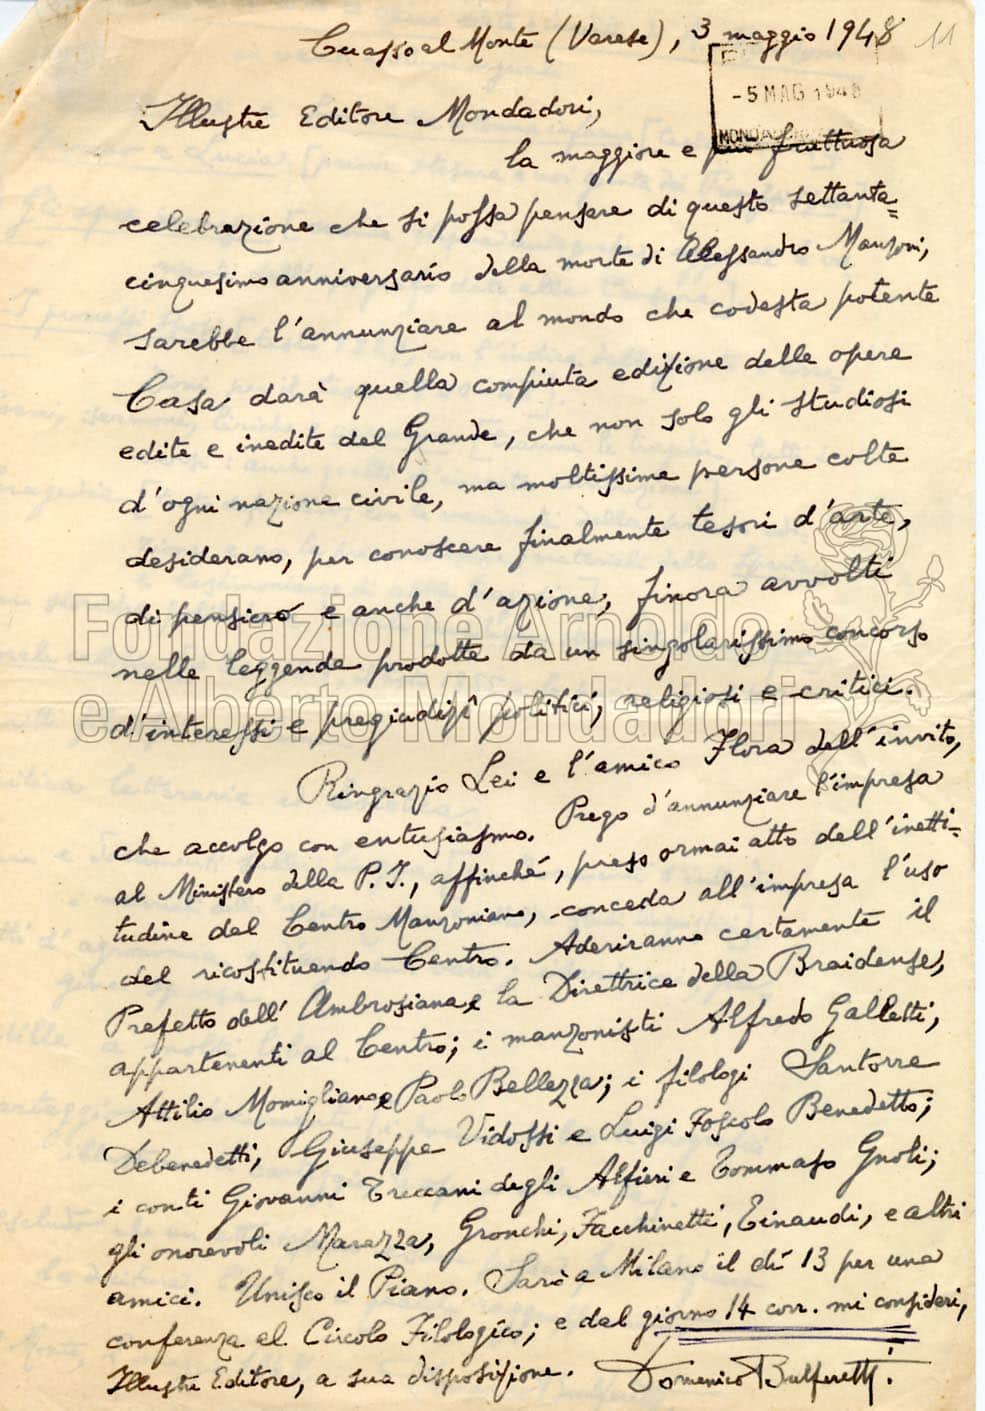 Cuasso al Monte (Varese), 3 maggio 1948
11
-5 MAG 1948
MONDADORI
Illustre Editore Mondadori,
la maggiore e più fruttuosa
celebrazione che si possa pensare di questo settanta=
cinquesimo anniversario della morte di Alessandro Manzoni,
sarebbe l'annunziare al mondo che codesta potente
Casa darà quella compiuta edizione delle opere
edite e inedite del Grande, che non solo gli studiosi
d'ogni nazione civile, ma moltissime persone colte
desiderano, per conoscere finalmente tesori d'arte,
di pensiero e anche d'azione, finora avvolti
nelle leggende prodotte da un singolarissimo concorso
d'interessi e pregiudizî politici, religiosi e critici.
Fondazione Arnoldo
e Alberto Mondadori
Ringrazio Lei e l'amico Flora dell'invito,
che accolgo con entusiasmo. Prego d'annunziare l'impresa
al Ministero della P. I., affinché, preso ormai atto dell'inetti=
tudine del Centro Manzoniano, conceda all'impresa l'uso
del ricostituendo Centro. Aderiranno certamente il
Prefetto dell'Ambrosiana e la Direttrice della Braidense,
appartenenti al Centro; i manzonisti Alfredo Galletti,
Attilio Momigliano e Paolo Bellezza; i filologi Santorre
Debenedetti, Giuseppe Vidossi e Luigi Foscolo Benedetto;
i conti Giovanni Treccani degli Alfieri e Tommaso Gnoli;
gli onorevoli Marazza, Gronchi, Facchinetti, Einaudi, e altri
amici. Unisco il Piano. Sarò a Milano il dì 13 per una
conferenza al Circolo Filologico; e dal giorno 14 corr. mi consideri,
Illustre Editore, a sua disposizione. Domenico Bulferetti.